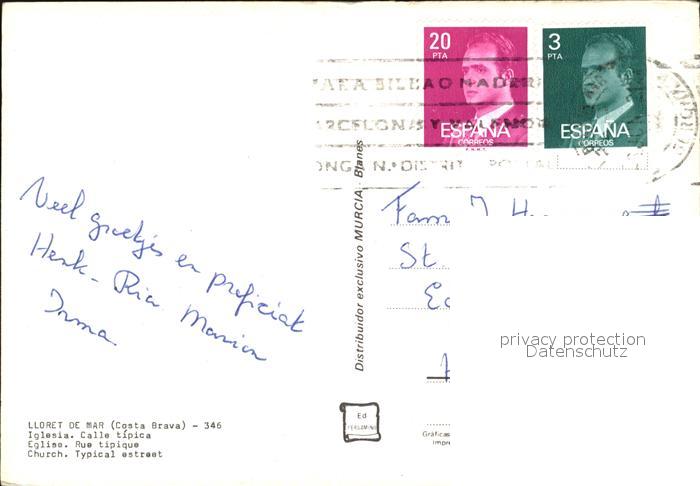 20
PTA
ESPAÑA
CORREOS
F.N.M.T.
3
PTA
ESPAÑA
CORREOS
PARA BILBAO MADRID
BARCELONA Y VALENCIA
PONGA N.º DISTRITO POSTAL
Distribuidor exclusivo MURCIA - Blanes
Veel groetjes en proficiat
Henk - Ria Marian
Irma.
Fam. J. H
St.
privacy protection
Datenschutz
Ed
PERGAMINO
Gráficas
Impre
LLORET DE MAR (Costa Brava) - 346
Iglesia. Calle típica
Eglise. Rue tipique
Church. Typical estreet